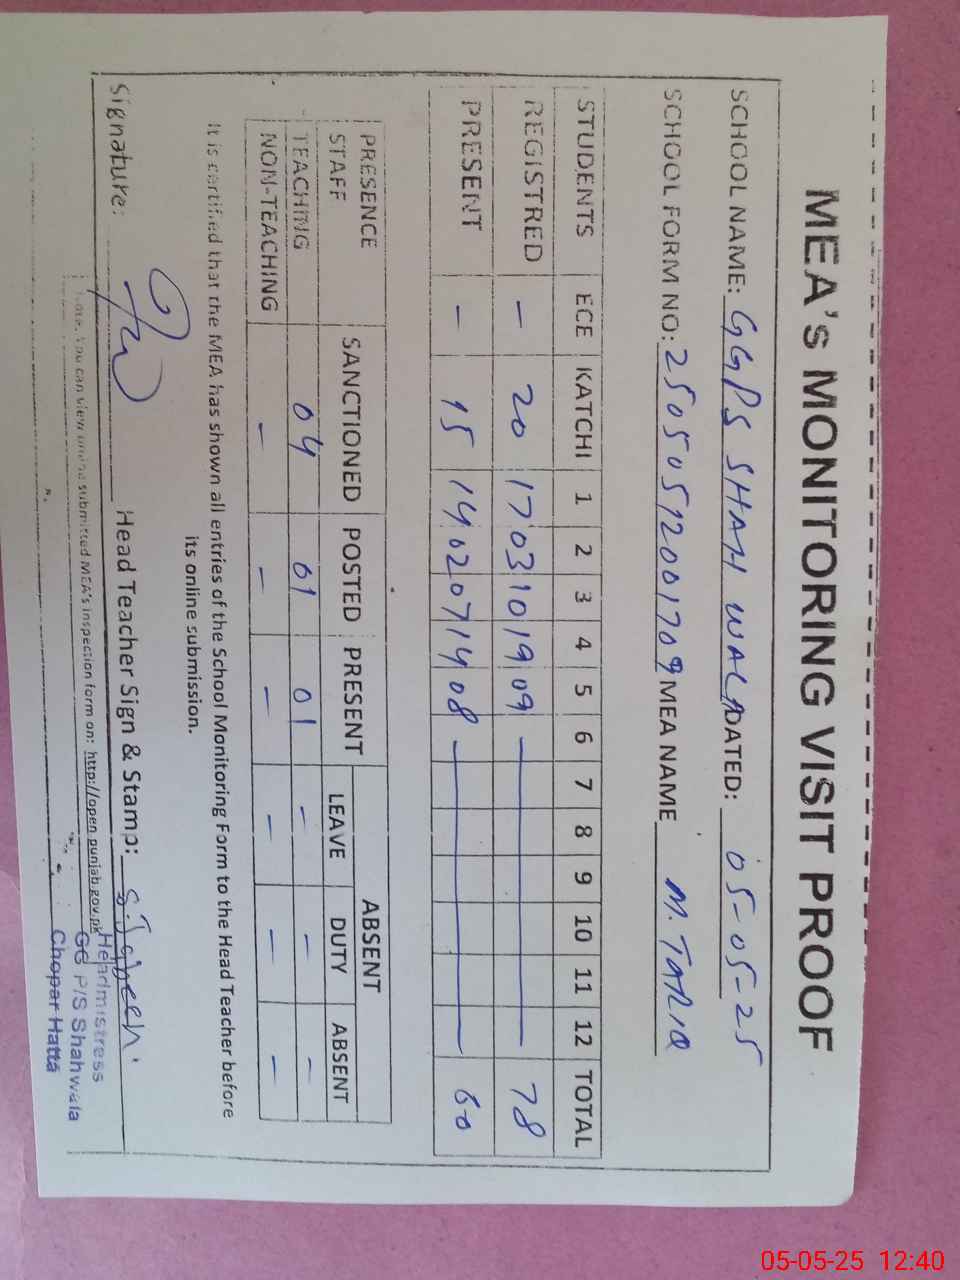 MEA's MONITORING VISIT PROOF
SCHOOL NAME: GGPS SHAH WALA DATED: 05-05-25
SCHOOL FORM NO: 25050512001709 MEA NAME M. TARIQ
STUDENTS ECE KATCHI 1 2 3 4 5 6 7 8 9 10 11 12 TOTAL
REGISTRED - 20 17 03 10 19 09 — 78
PRESENT - 15 14 02 07 14 08 — 60
PRESENCE STAFF SANCTIONED POSTED PRESENT ABSENT
LEAVE DUTY ABSENT
TEACHING 04 01 01 - - -
NON-TEACHING - - - - - -
It is certified that the MEA has shown all entries of the School Monitoring Form to the Head Teacher before
its online submission.
Signature: Head Teacher Sign & Stamp:
Note. You can view online submitted MEA's inspection form on: http://open.punjab.gov.pk
Headmistress
GG P/S Shahwala
Chopar Hatta
05-05-25 12:40